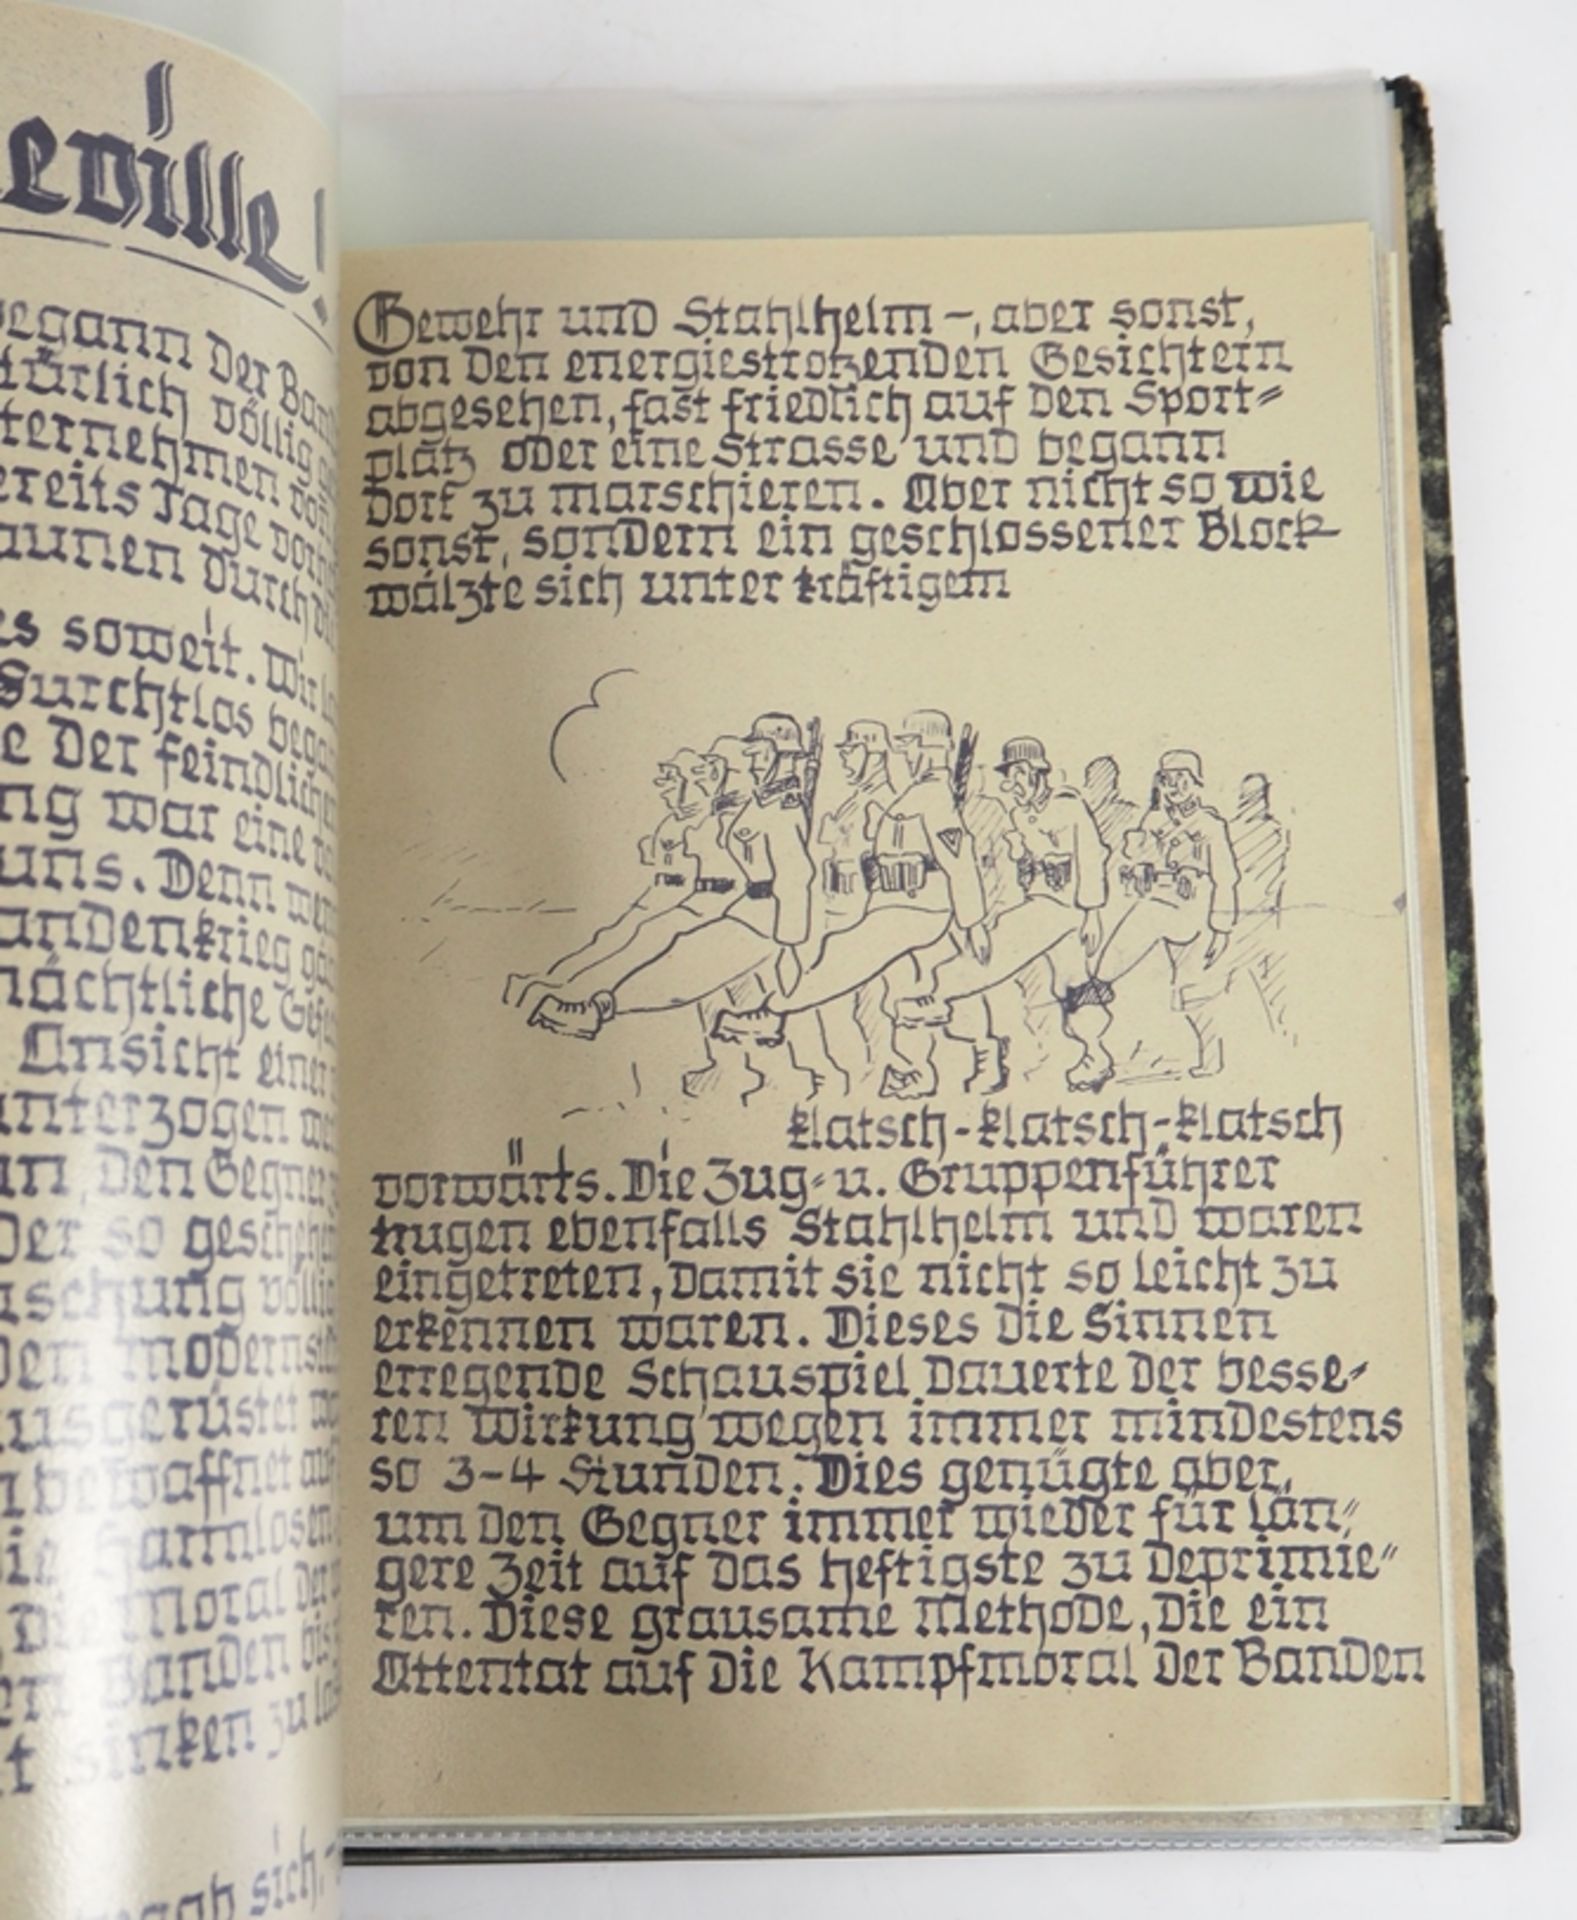 eville!
begann der
türlich völlig
ternehmen
ereits Tage
aunen durch
es soweit. Wir
Furchtlos
e der feindlichen
ng war eine
uns. Denn
andenkrieg
nächtliche
Ansicht einer
unterzogen
an, den Gegner
der so
schung
den
ausgerüstet
bewaffnet
ie Harmlosen
die Moral der
en Banden bis
t sinken zu
sich,-
Gewehr und Stahlhelm -, aber sonst,
von den energiestrotzenden Gesichtern
abgesehen, fast friedlich auf den Sport=
platz oder eine Strasse und begann
dort zu marschieren. Aber nicht so wie
sonst, sondern ein geschlossener Block
wälzte sich unter kräftigem
klatsch-klatsch-klatsch
vorwärts. Die Zug= u. Gruppenführer
trugen ebenfalls Stahlhelm und waren
eingetreten, damit sie nicht so leicht zu
erkennen waren. Dieses die Sinnen
erregende Schauspiel dauerte der besse=
ren Wirkung wegen immer mindestens
so 3-4 Stunden. Dies genügte aber,
um den Gegner immer wieder für län=
gere Zeit auf das heftigste zu deprimie=
ren. Diese grausame Methode, die ein
Attentat auf die Kampfmoral der Banden